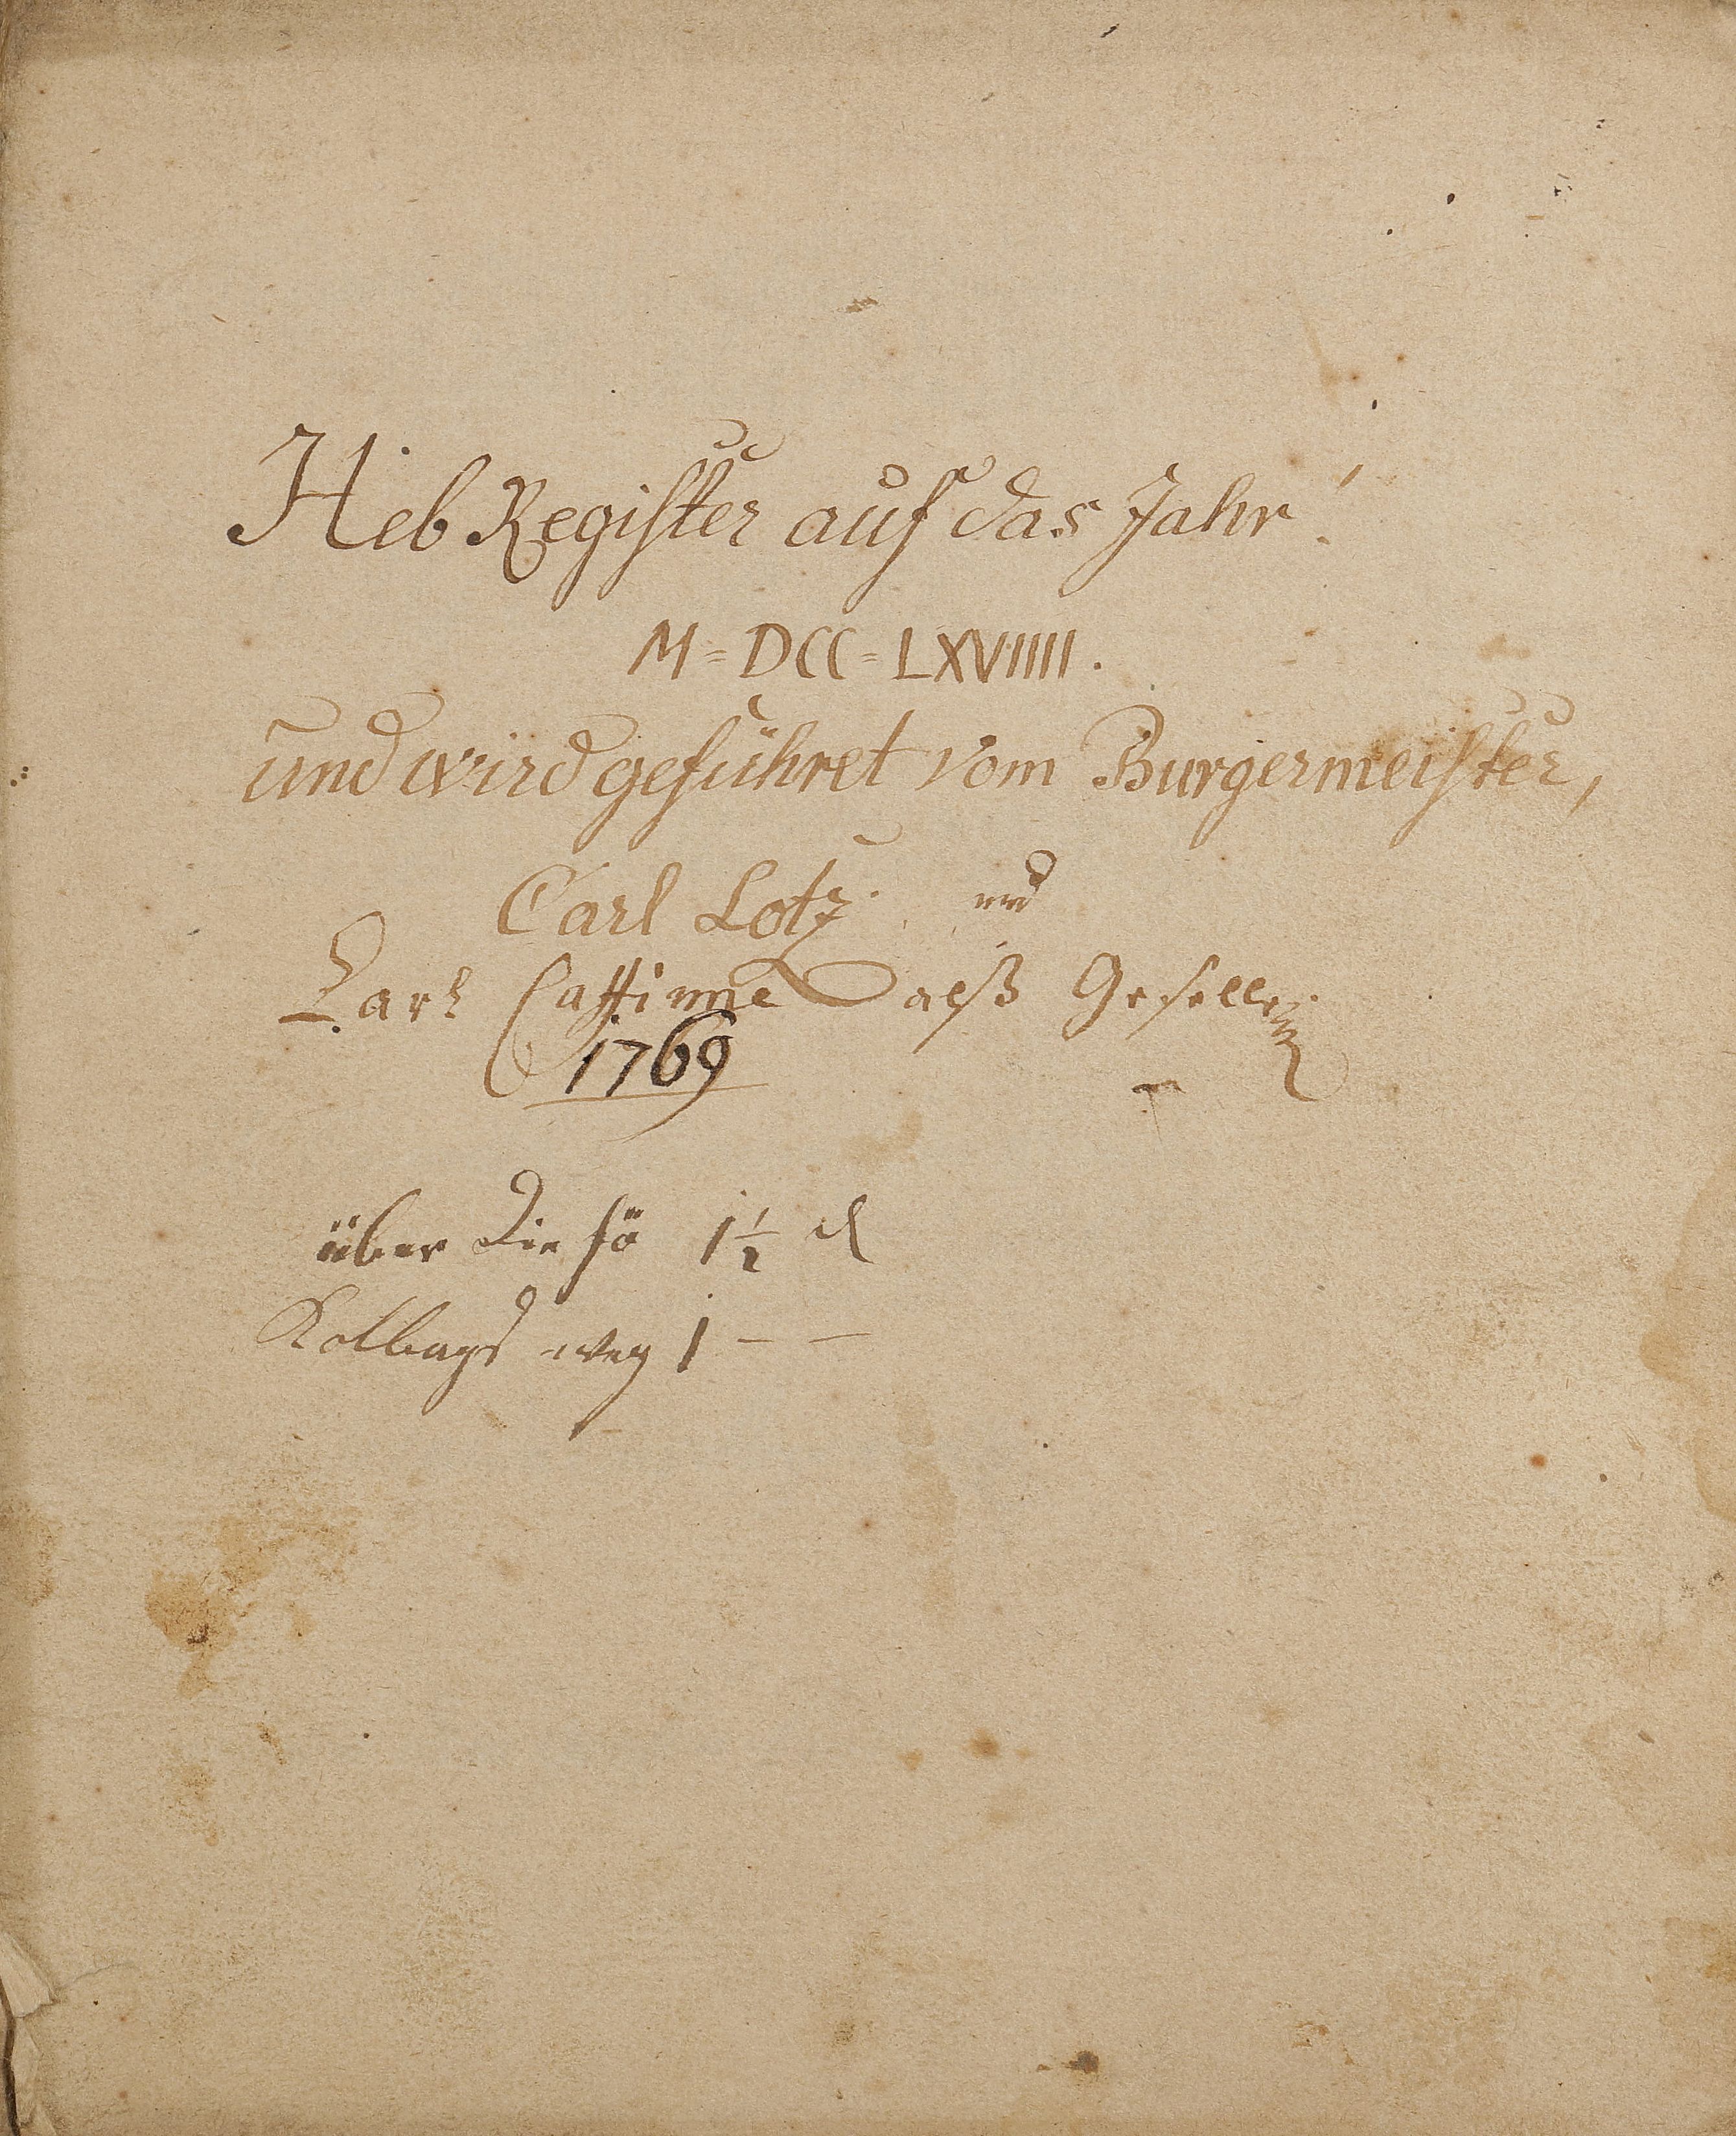 Heb Register auf das Jahr!
M=DCC=LXVIIII.
und wird geführet vom Burgermeister,
Carl Lotz. und
Carl alß Gesellen
1769
über die 1½
weg 1 — —